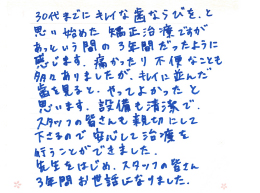 30代までにキレイな歯ならびを、と
思い始めた矯正治療ですが
あっという間の3年間だったように
感じます。痛かったり不便なことも
多々ありましたが、キレイに並んだ
歯を見ると、やってよかったと
思います。設備も清潔で、
スタッフの皆さんも親切にして
下さるので安心して治療を
行うことができました。
先生をはじめ、スタッフの皆さん
3年間お世話になりました。